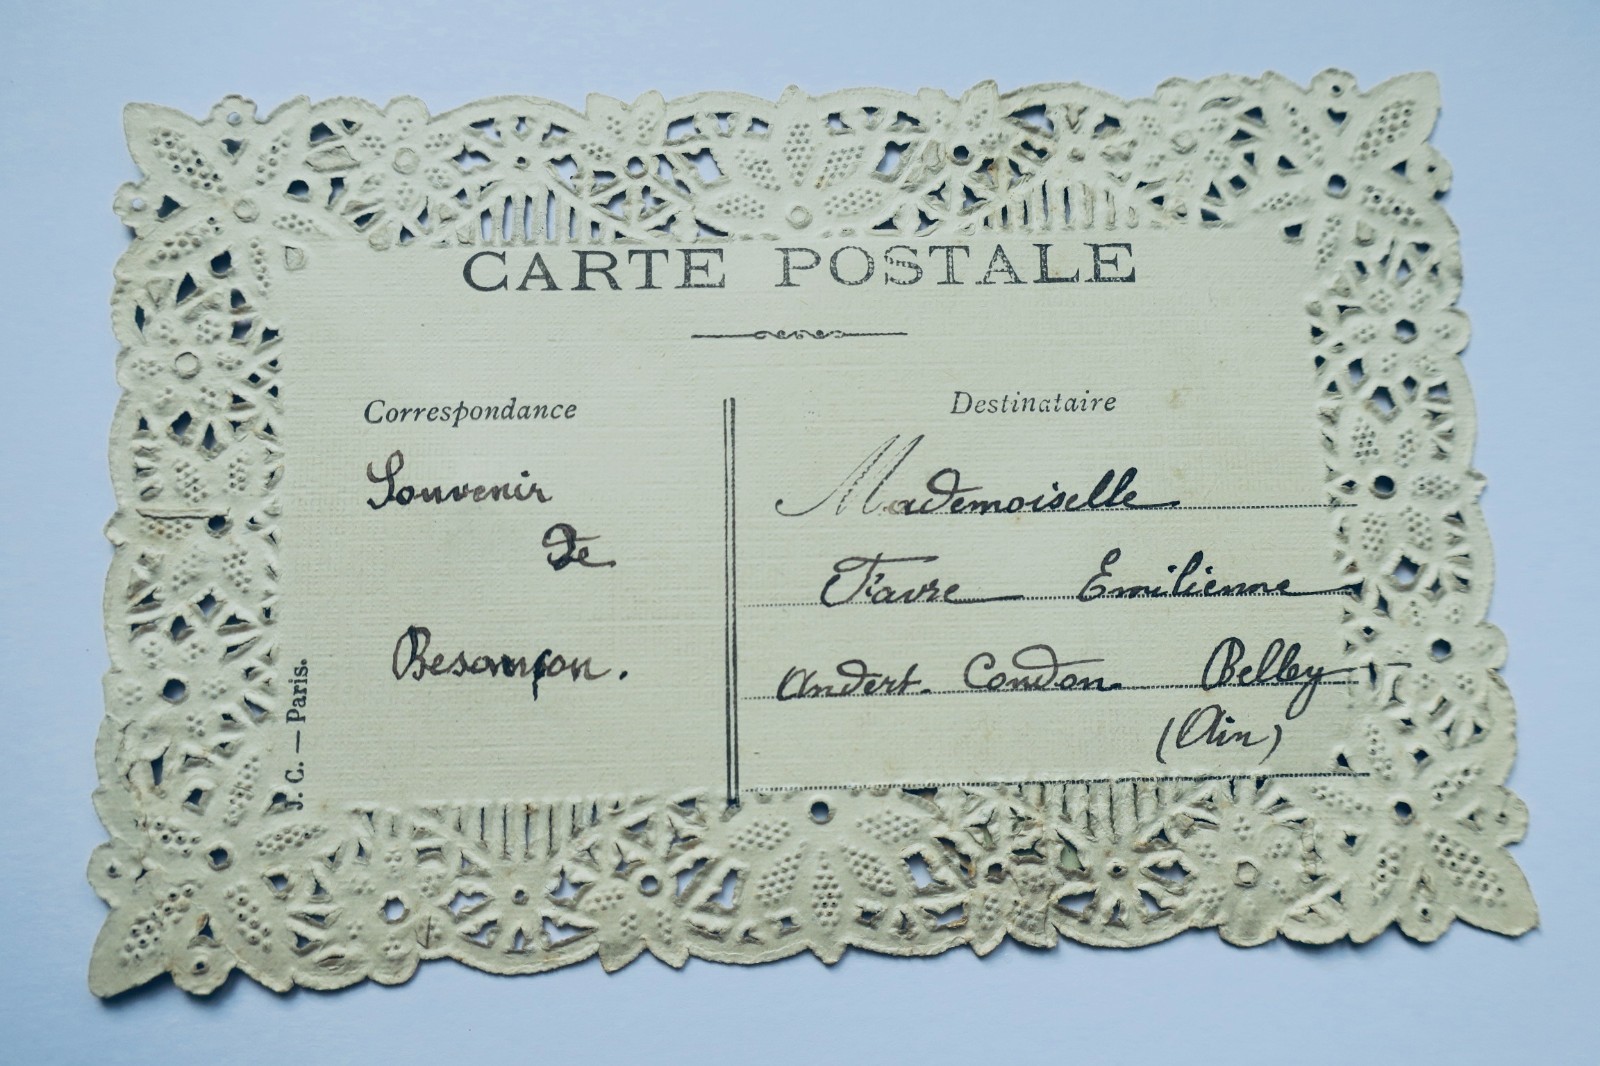 CARTE POSTALE
Correspondance
Souvenir
De
Besançon.
J. C. — Paris.
Destinataire
Mademoiselle
Favre Emilienne
Andert. Condon. Belley
(Ain)